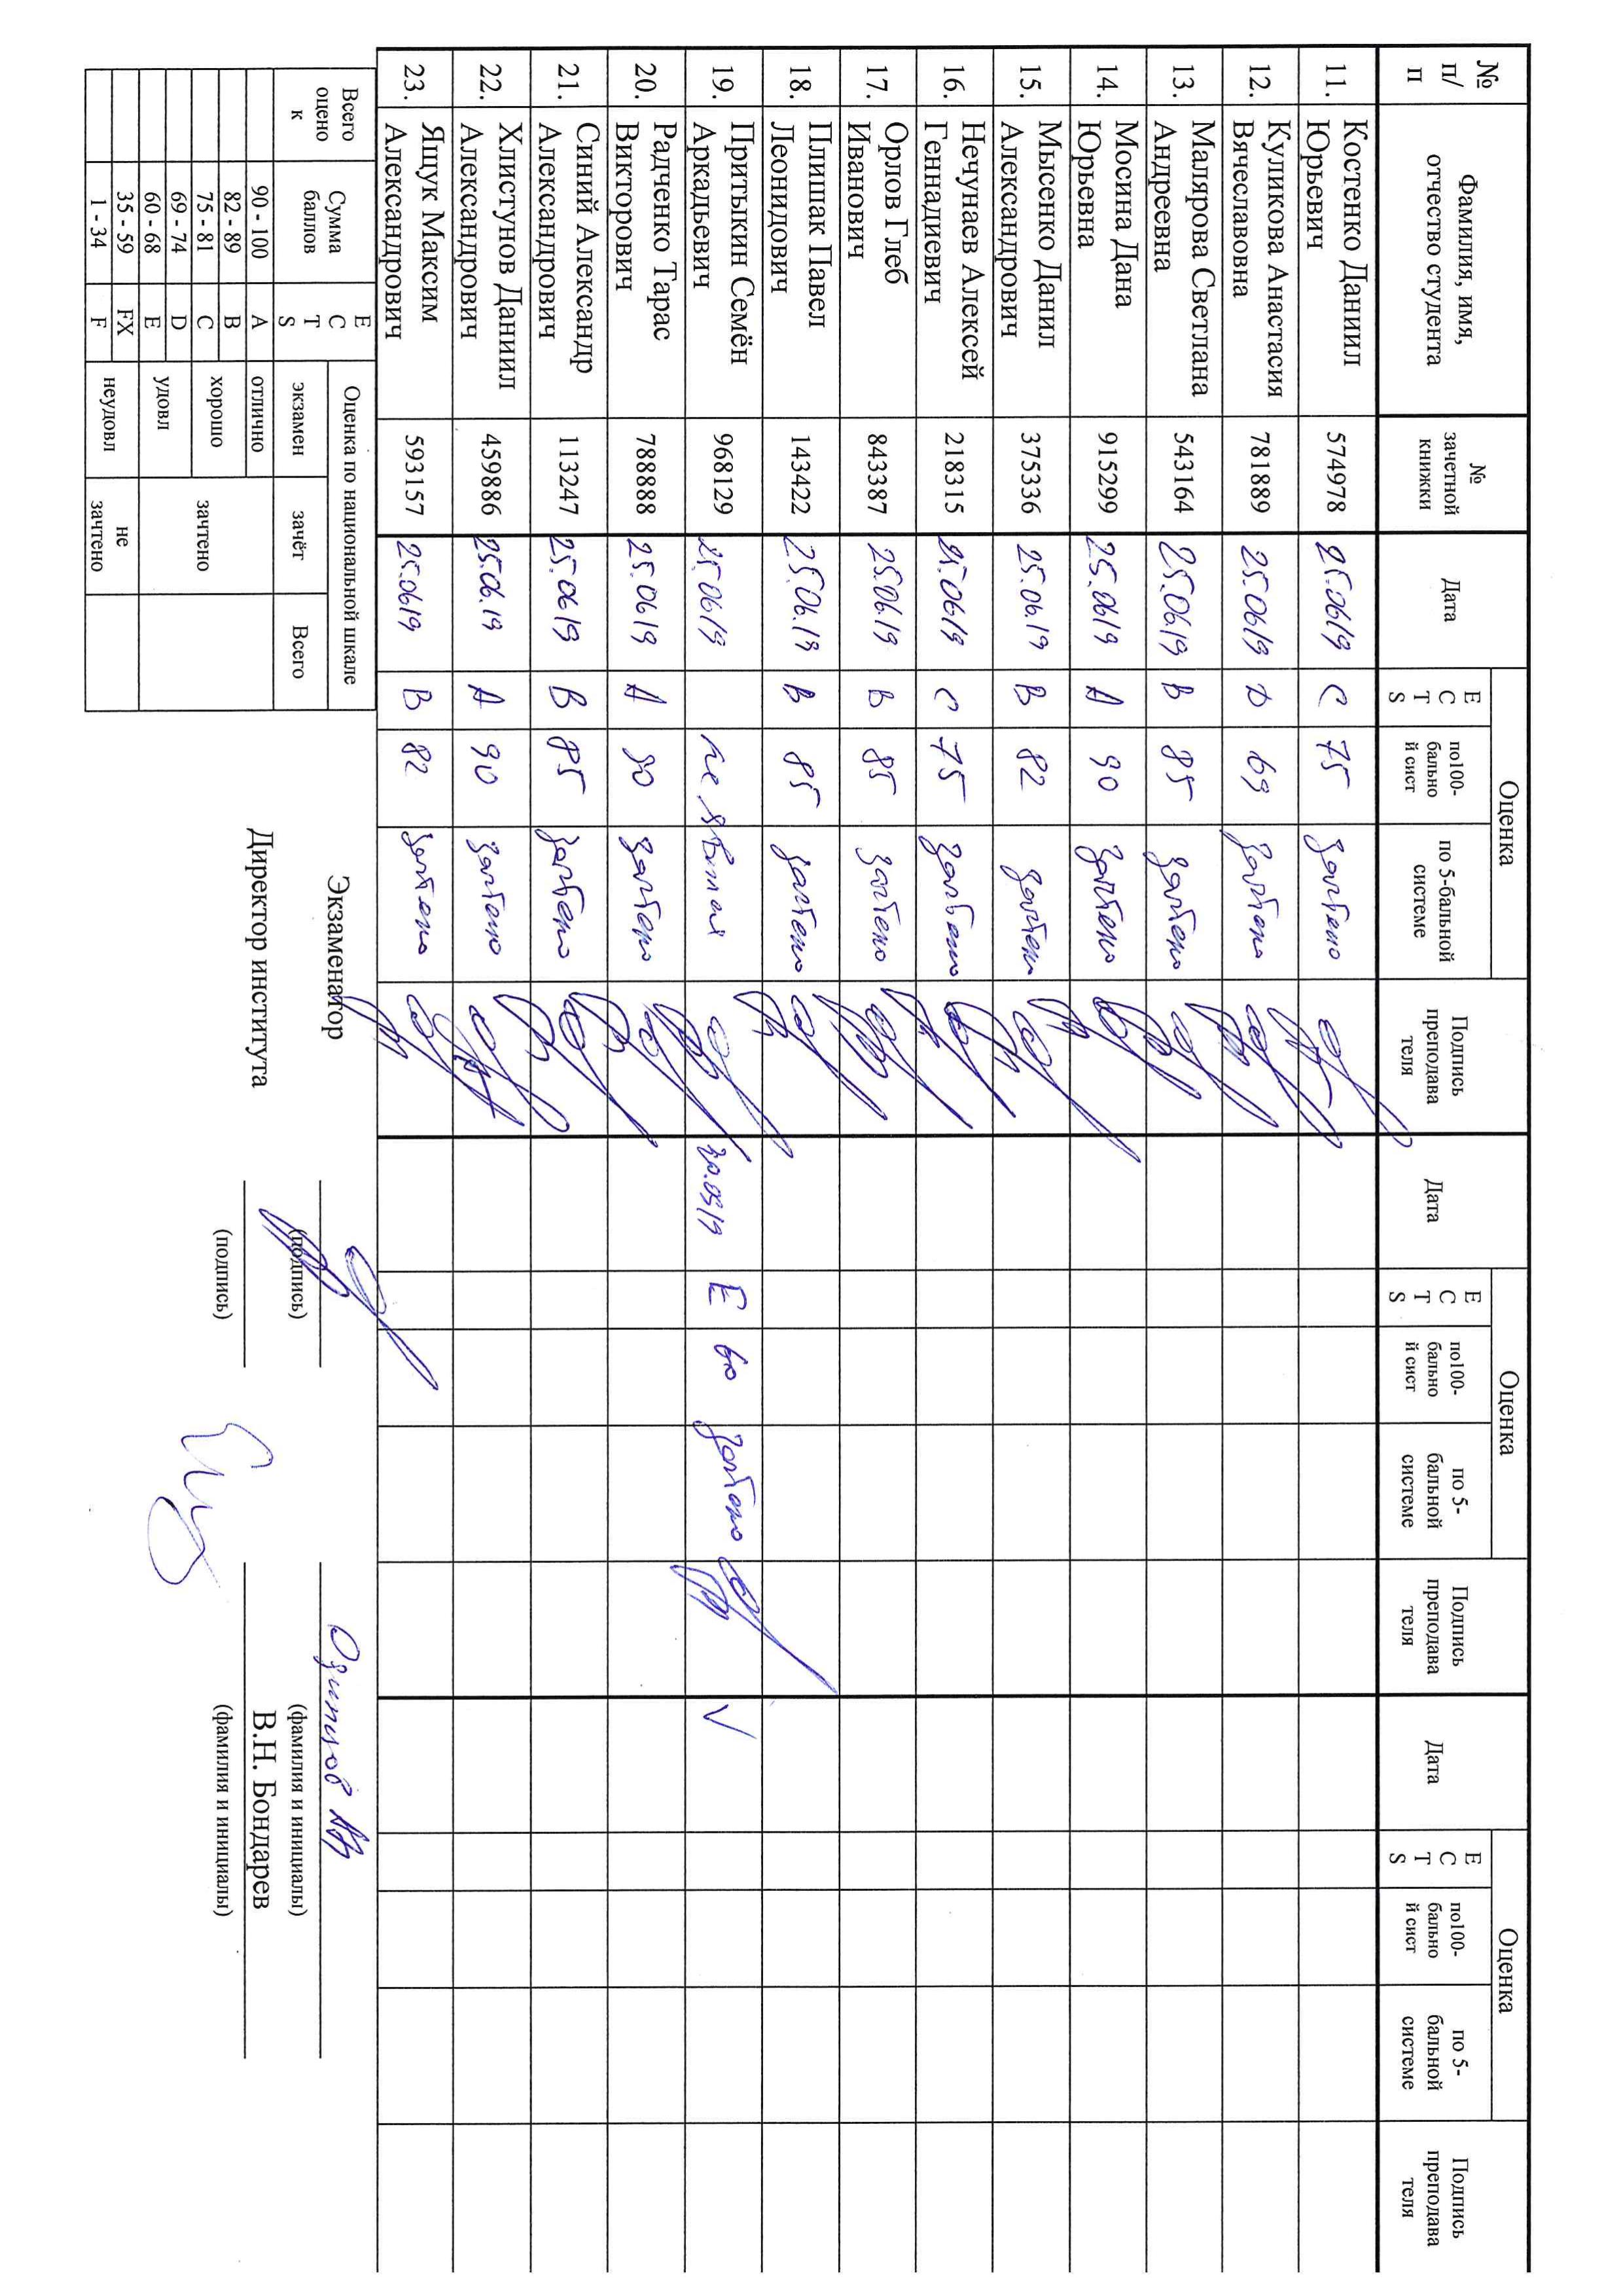 № п/п Фамилия, имя, отчество студента № зачетной книжки Дата Оценка Подпись преподавателя Дата Оценка Подпись преподавателя Дата Оценка Подпись преподавателя
ECTS по100-бальной сист по 5-бальной системе ECTS по100-бальной сист по 5-бальной системе ECTS по100-бальной сист по 5-бальной системе
11. Костенко Даниил Юрьевич 574978 25.06.19 C 75 зачтено
12. Куликова Анастасия Вячеславовна 781889 25.06.19 D 69 зачтено
13. Малярова Светлана Андреевна 543164 25.06.19 B 85 зачтено
14. Мосина Дана Юрьевна 915299 25.06.19 A 90 зачтено
15. Мысенко Данил Александрович 375336 25.06.19 B 82 зачтено
16. Нечунаев Алексей Геннадиевич 218315 25.06.19 C 75 зачтено
17. Орлов Глеб Иванович 843387 25.06.19 B 85 зачтено
18. Плишак Павел Леонидович 143422 25.06.19 B 85 зачтено
19. Притыкин Семён Аркадьевич 968129 25.06.19 не явился 30.09.19 E 60 зачтено
20. Радченко Тарас Викторович 788888 25.06.19 A 90 зачтено
21. Синий Александр Александрович 113247 25.06.19 B 85 зачтено
22. Хлистунов Даниил Александрович 459886 25.06.19 A 90 зачтено
23. Ящук Максим Александрович 593157 25.06.19 B 82 зачтено
Всего оценок Сумма баллов ECTS Оценка по национальной шкале
экзамен зачёт Всего
90 - 100 A отлично
82 - 89 B хорошо
75 - 81 C
зачтено
69 - 74 D удовл
60 - 68 E
35 - 59 FX неудовл не зачтено
1 - 34 F
Экзаменатор Одинцов
(подпись) (фамилия и инициалы)
Директор института В.Н. Бондарев
(подпись) (фамилия и инициалы)